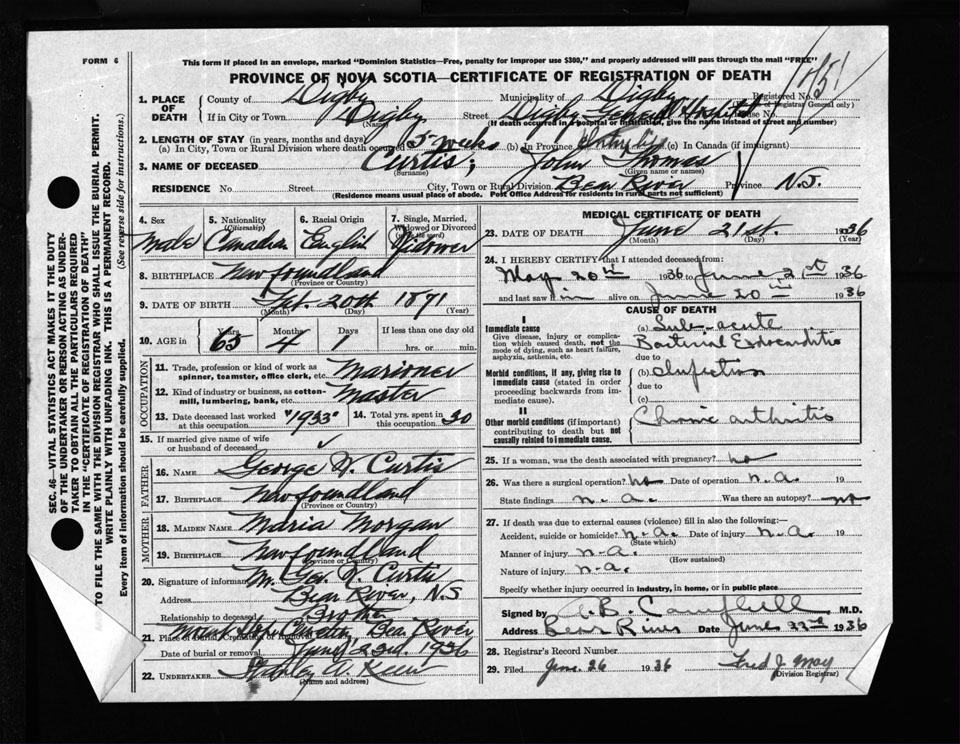 FORM 6
This form if placed in an envelope, marked "Dominion Statistics—Free, penalty for improper use $300," and properly addressed will pass through the mail "FREE"
PROVINCE OF NOVA SCOTIA—CERTIFICATE OF REGISTRATION OF DEATH
SEC. 46—VITAL STATISTICS ACT MAKES IT THE DUTY
OF THE UNDERTAKER OR PERSON ACTING AS UNDER-
TAKER TO OBTAIN ALL THE PARTICULARS REQUIRED
IN THE "CERTIFICATE OF REGISTRATION OF DEATH"
TO FILE THE SAME WITH THE DIVISION REGISTRAR WHO SHALL ISSUE THE BURIAL PERMIT.
WRITE PLAINLY WITH UNFADING INK. THIS IS A PERMANENT RECORD.
Every item of information should be carefully supplied. (See reverse side for instructions.)
1. PLACE OF DEATH County of Digby Municipality of Digby Registered No.
(Registrar General only)
If in City or Town Digby Street Digby General Hospital House No.
(Name) (If death occurred in a hospital or institution, give the name instead of street and number)
2. LENGTH OF STAY (in years, months and days)
(a) In City, Town or Rural Division where death occurred 5 weeks (b) In Province (c) In Canada (if immigrant)
3. NAME OF DECEASED Curtis, John Thomas
(Surname) (Given name or names)
RESIDENCE No. Street City, Town or Rural Division Bear River Province N.S.
(Residence means usual place of abode. Post Office Address for residents in rural parts not sufficient)
4. Sex 5. Nationality (Citizenship) 6. Racial Origin 7. Single, Married, Widowed or Divorced
Male Canadian English Widower
8. BIRTHPLACE Newfoundland
(Province or Country)
9. DATE OF BIRTH 20th 1871
(Month) (Day) (Year)
10. AGE in Years Months Days If less than one day old
65 4 1 hrs. or min.
OCCUPATION
11. Trade, profession or kind of work as spinner, teamster, office clerk, etc. Marioner
12. Kind of industry or business, as cotton-mill, lumbering, bank, etc. Master
13. Date deceased last worked at this occupation "1933" 14. Total yrs. spent in this occupation 20
15. If married give name of wife or husband of deceased ✓
FATHER
16. NAME George W. Curtis
17. BIRTHPLACE Newfoundland
(Province or Country)
MOTHER
18. MAIDEN NAME Maria Morgan
19. BIRTHPLACE Newfoundland
(Province or Country)
20. Signature of informant Geo. W. Curtis
Address Bear River, N.S
Relationship to deceased Brother
21. Place of Burial, Cremation or Removal Bear River
Date of burial or removal June 23rd. 1936
22. UNDERTAKER Stanley A.
(Name and address)
MEDICAL CERTIFICATE OF DEATH
23. DATE OF DEATH June 21st. 1936
(Month) (Day) (Year)
24. I HEREBY CERTIFY that I attended deceased from:
May 20th 1936 to June 21st 1936
and last saw him alive on June 20th 1936
CAUSE OF DEATH
I
Immediate cause
Give disease, injury or complication which caused death, not the mode of dying, such as heart failure, asphyxia, asthenia, etc.
(a) Sub-acute
Bacterial Endocarditis
due to
Morbid conditions, if any, giving rise to immediate cause (stated in order proceeding backwards from immediate cause).
(b) Infection
due to
(c)
II
Other morbid conditions (if important) contributing to death but not causally related to immediate cause.
Chronic arthritis
25. If a woman, was the death associated with pregnancy? no
26. Was there a surgical operation? no Date of operation n.a.
State findings n.a. Was there an autopsy? no
27. If death was due to external causes (violence) fill in also the following:—
Accident, suicide or homicide? n.a. Date of injury n.a. 19
(State which)
Manner of injury n-a.
(How sustained)
Nature of injury n-a.
Specify whether injury occurred in Industry, in home, or in public place
Signed by B. Campbell M.D.
Address Bear River Date June 22nd 1936
28. Registrar's Record Number
29. Filed June 26 1936 Fred J. May
(Division Registrar)